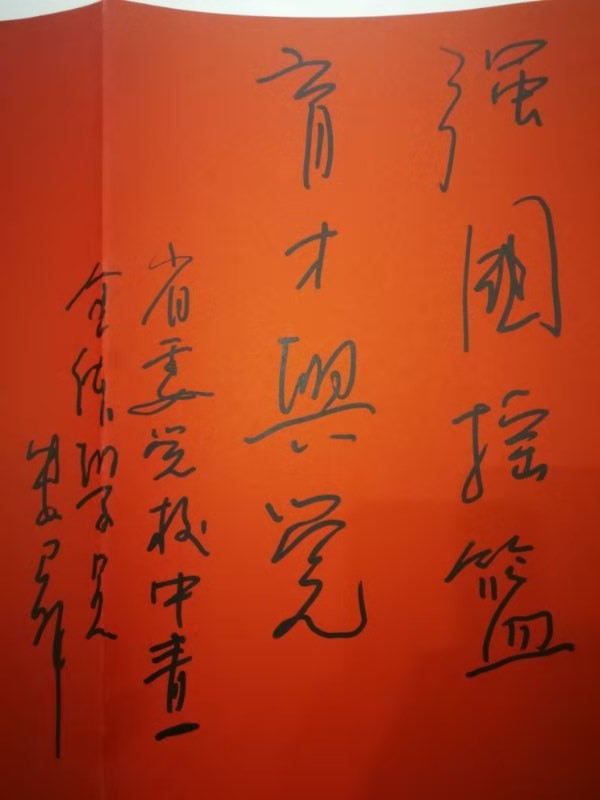 强國摇篮
育才興党
省委党校中青一
全体学员